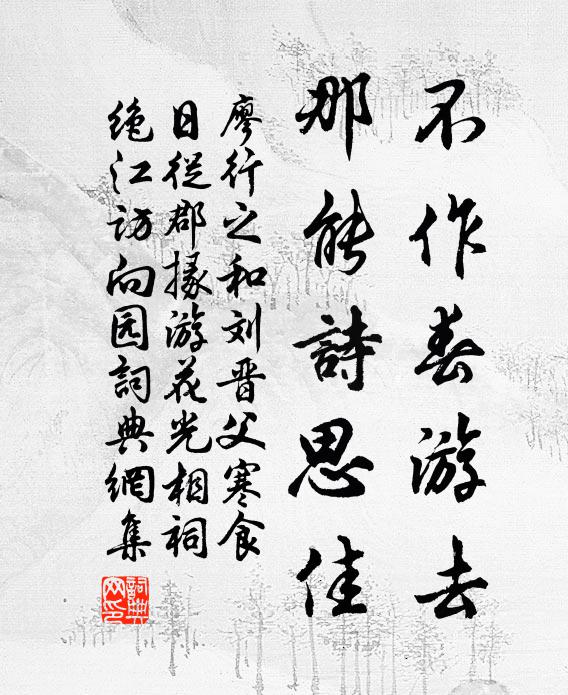 不作春游去
那能詩思佳
廖行之和刘晋父寒食
日從郡掾游花光相祠
绝江访向园詞典網集